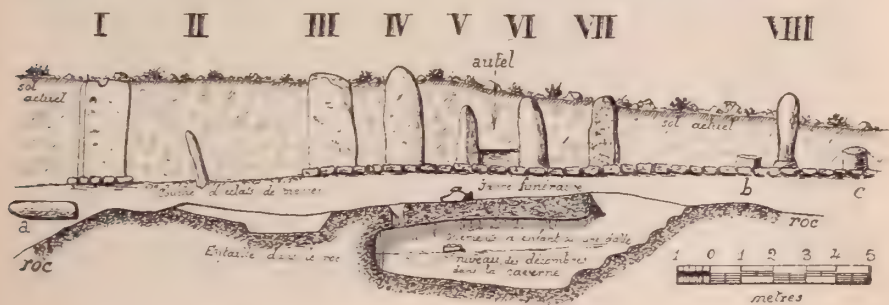 I II III IV V VI VII VIII
autel
sol
actuel
sol actuel
d'éclats de pierres
Jarre funéraire
b
c
a
roc
Entaille dans le roc
enfant
une dalle
niveau des décombres
dans la caverne
roc
1 0 1 2 3 4 5
metres